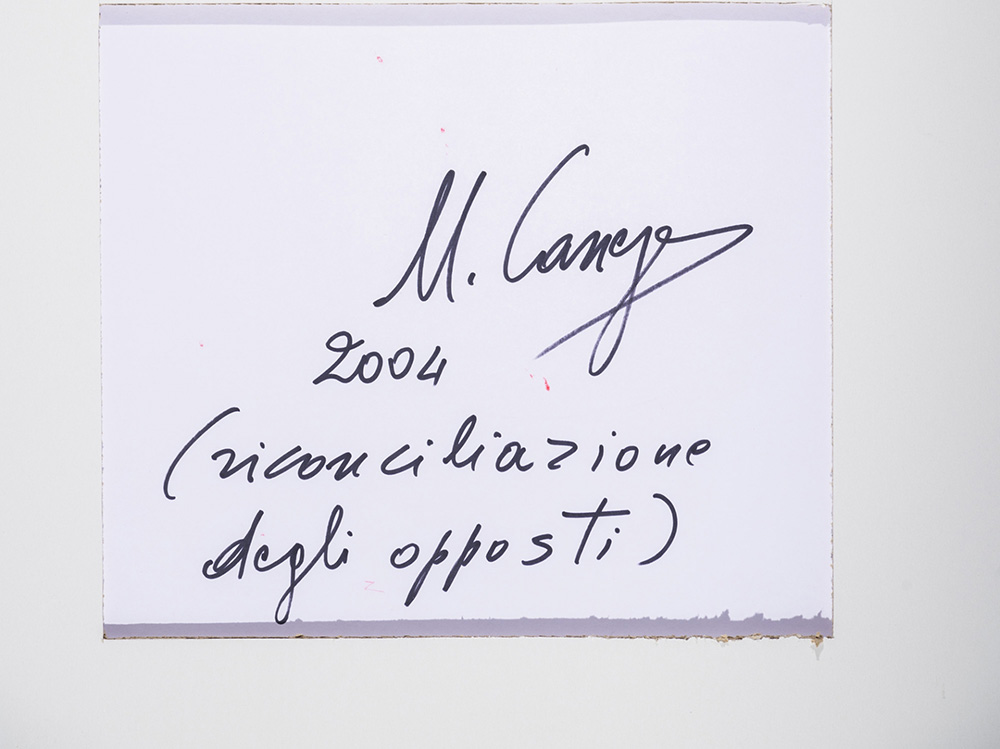 M.
2004
(riconciliazione
degli opposti)